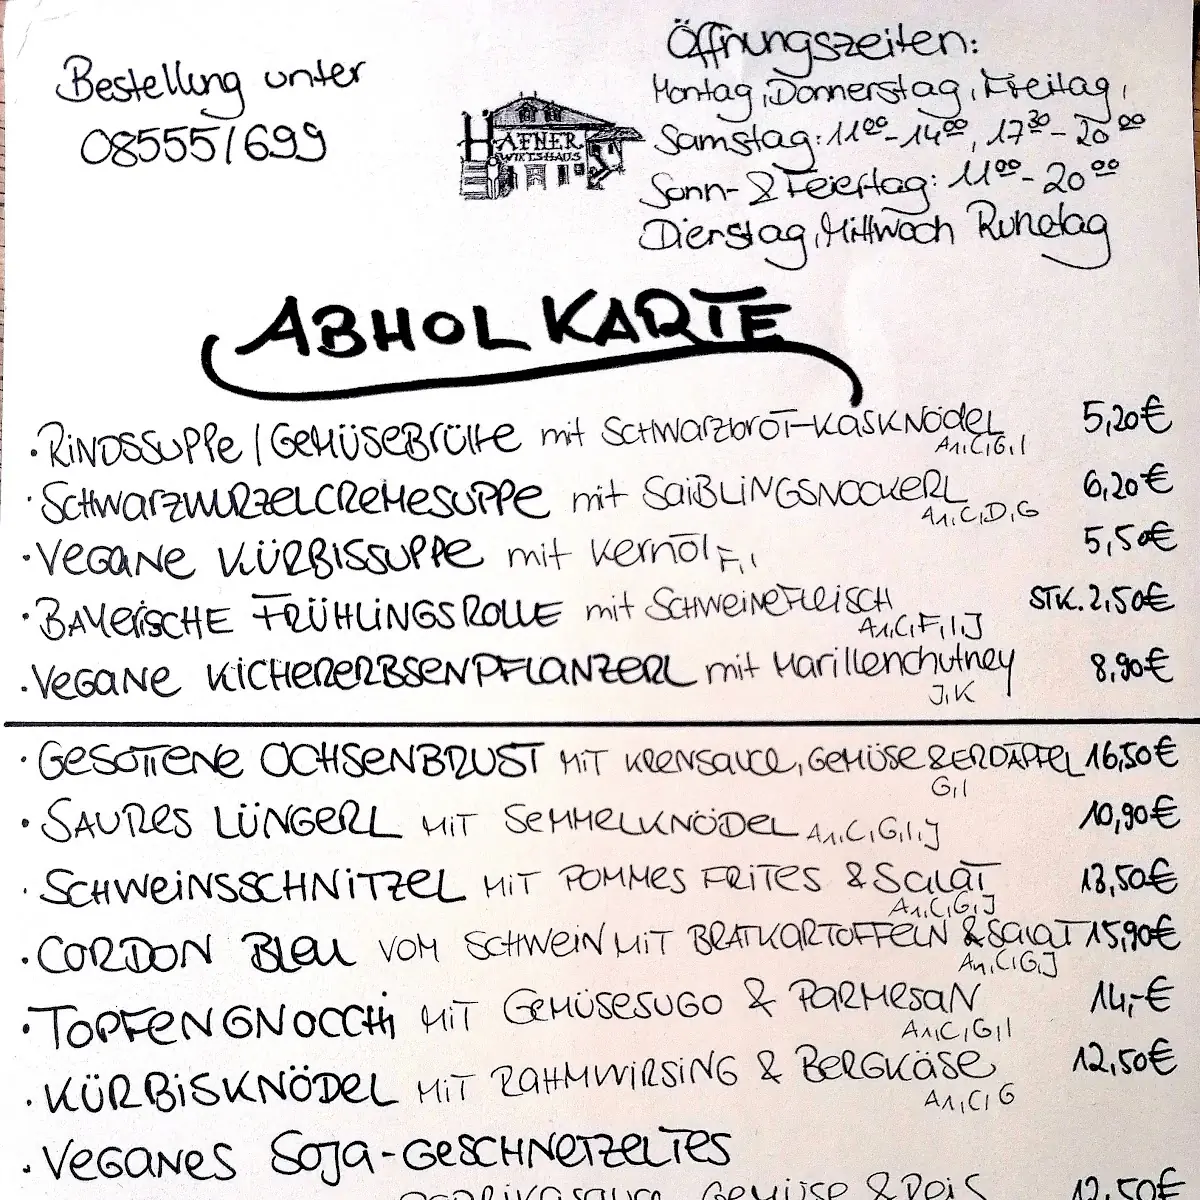 Bestellung unter
08555/699
HAFNER
WIRTSHAUS
Öffnungszeiten:
Montag, Donnerstag, Freitag,
Samstag: 11⁰⁰-14⁰⁰, 17³⁰-20⁰⁰
Sonn- & Feiertag: 11⁰⁰-20⁰⁰
Dienstag, Mittwoch Ruhetag
ABHOLKARTE
· RINDSSUPPE / GEMÜSEBRÜHE mit SCHWARZBROT-KASKNÖDEL 5,20€
A1,C,G,I
· SCHWARZWURZELCREMESUPPE mit SAIBLINGSNOCKERL 6,20€
A1,C,D,G
· VEGANE KÜRBISSUPPE mit Kernöl F,I 5,50€
· BAYERISCHE FRÜHLINGSROLLE mit SCHWEINEFLEISCH STK. 2,50€
A1,C,F,I,J
· VEGANE KICHERERBSENPFLANZERL mit Marillenchutney 8,90€
J,K
· GESOTTENE OCHSENBRUST MIT KRENSAUCE, GEMÜSE & ERDÄPFEL 16,50€
G,I
· SAURES LÜNGERL MIT SEMMELKNÖDEL A1,C,G,I,J 10,90€
· SCHWEINSSCHNITZEL MIT POMMES FRITES & SALAT 13,50€
A1,C,G,J
· CORDON BLEU VOM SCHWEIN MIT BRATKARTOFFELN & SALAT 15,90€
A1,C,G,J
· TOPFENGNOCCHI MIT GEMÜSESUGO & PARMESAN 14,-€
A1,C,G,I
· KÜRBISKNÖDEL MIT RAHMWIRSING & BERGKÄSE 12,50€
A1,C,G
· VEGANES SOJA-GESCHNETZELTES
PAPRIKASAUCE, GEMÜSE & REIS 12,50€